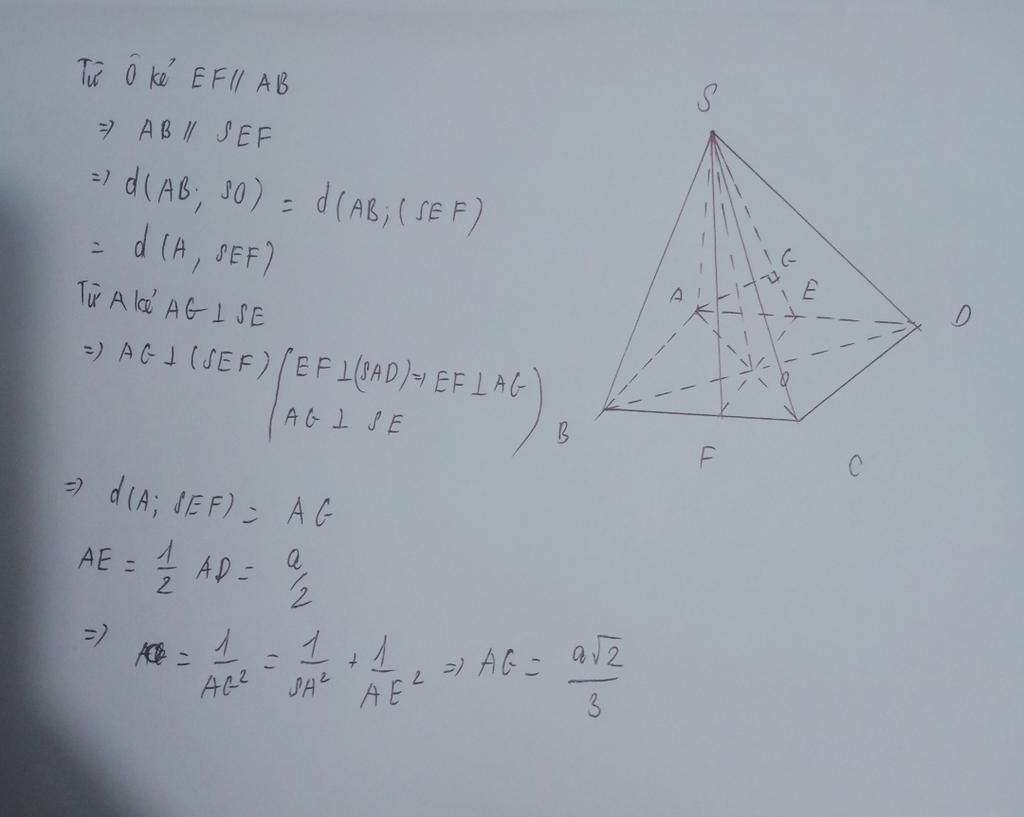 Từ O kẻ EF // AB
=> AB // SEF
=> d(AB; SO) = d(AB; (SEF)
= d(A, SEF)
Từ A kẻ AG ⊥ SE
=> AG ⊥ (SEF) (EF ⊥ (SAD) => EF ⊥ AG
AG ⊥ SE)
=> d(A; SEF) = AG
AE = 1/2 AD = a/2
=> = 1/AG² = 1/SA² + 1/AE² => AG = a√2/3
S
G
A
E
D
O
B
F
C